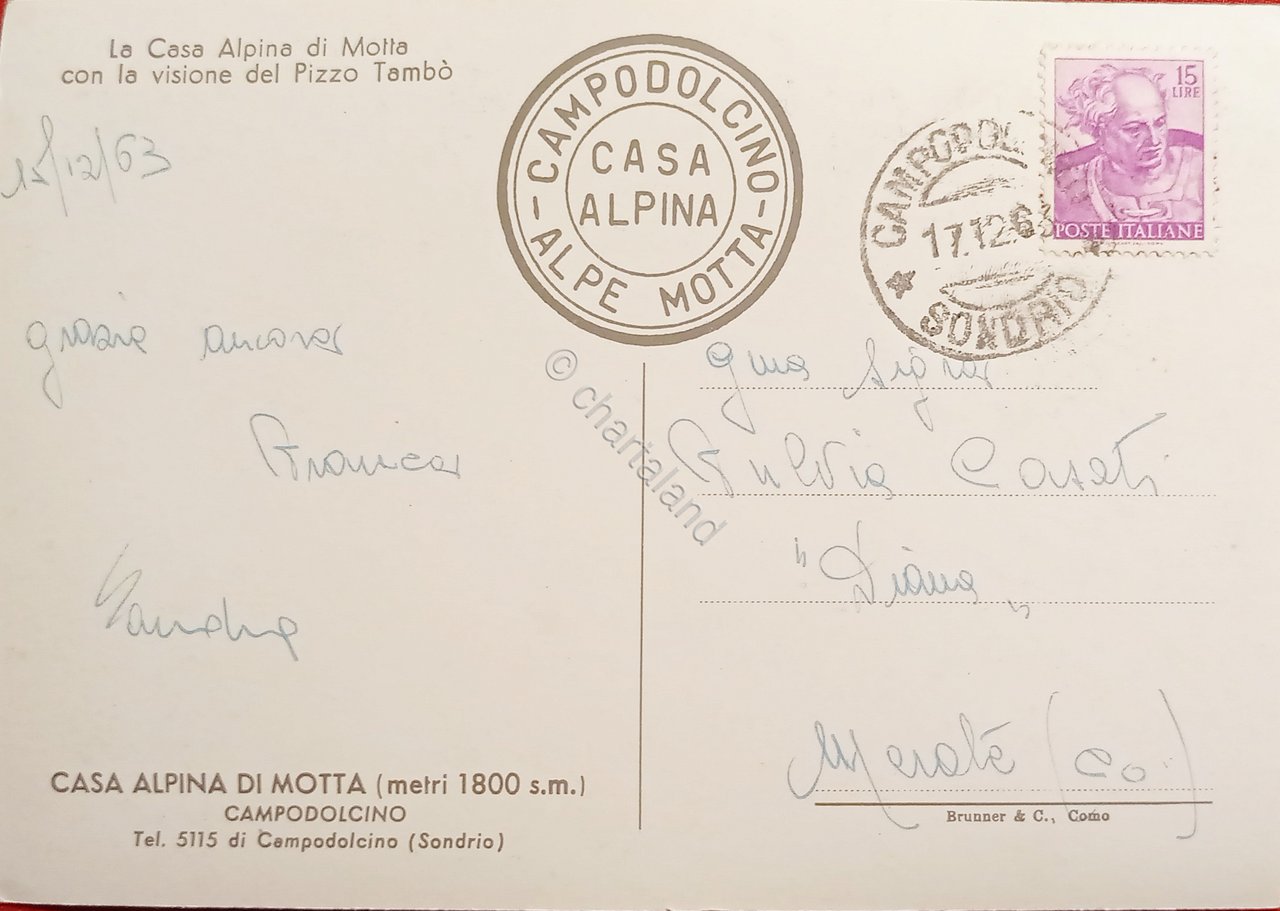 La Casa Alpina di Motta
con la visione del Pizzo Tambò
15/12/63
grazie ancora
Franca
Sandra
CASA ALPINA DI MOTTA (metri 1800 s.m.)
CAMPODOLCINO
Tel. 5115 di Campodolcino (Sondrio)
CAMPODOLCINO
CASA
ALPINA
- ALPE MOTTA -
CAMPODOL
17.12.63
SONDRIO
15
LIRE
POSTE ITALIANE
© chartaland
Gma Sigra
Fulvia Casati
"Diana"
Merate (Co.)
Brunner & C., Como